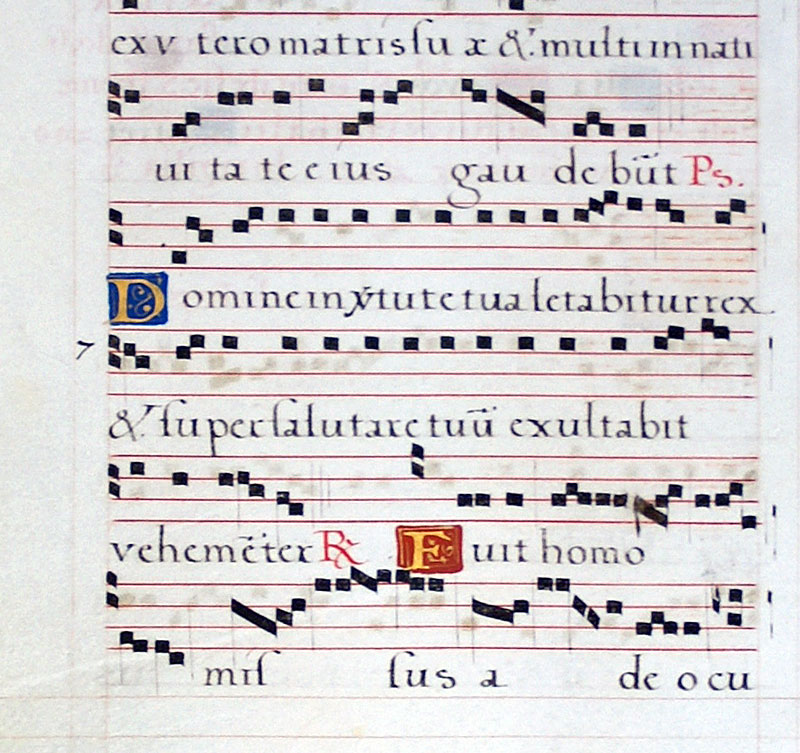 ex v tero matris su æ &. multi in nati
ui ta te e ius gau de bũt Ps.
Domine in v̓tute tua letabitur rex
7
& super salutare tuū exultabit
vehemēter ℟ Fuit homo
mis sus a de o cu